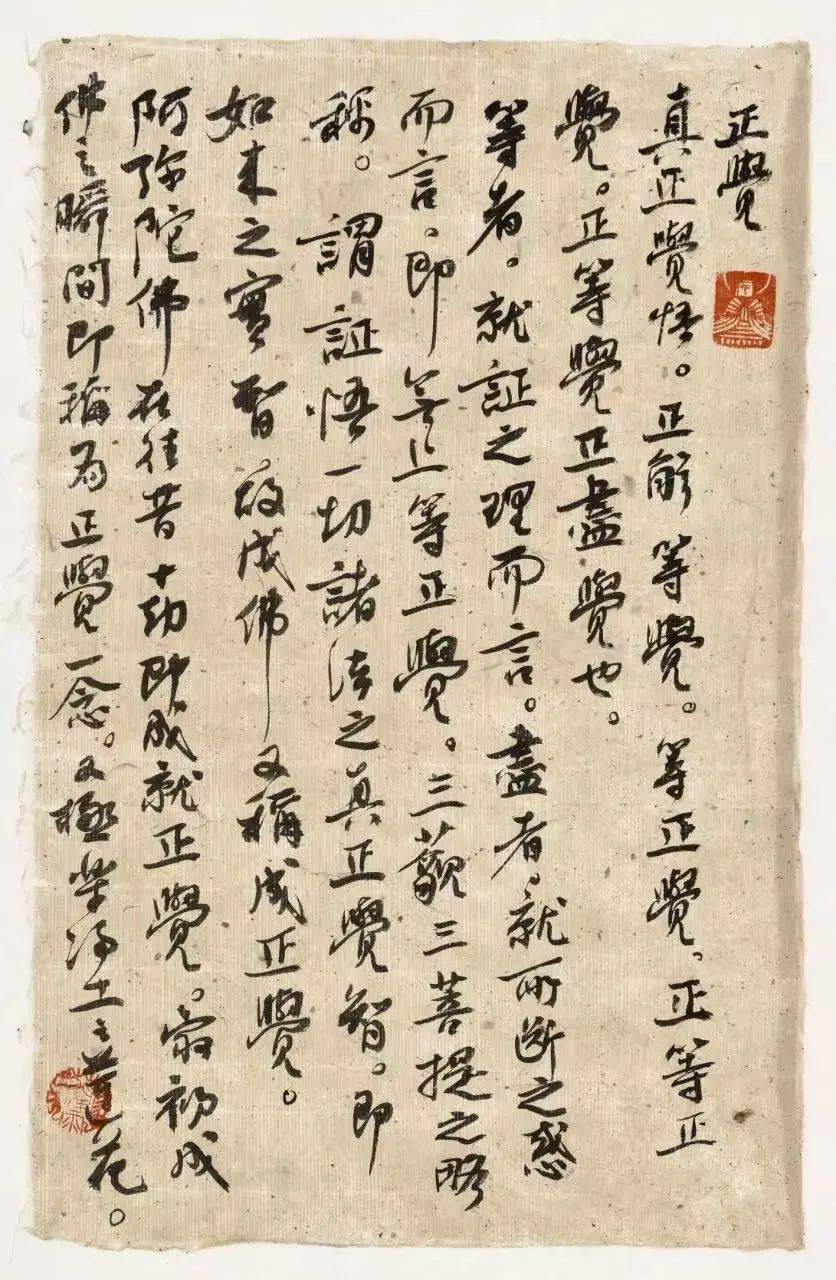 正覺
真正覺悟。正解等覺。等正覺。正等正
覺。正等覺正盡覺也。
等者。就証之理而言。盡者。就所斷之惑
而言。即無上等正覺。三藐三菩提之略
稱。謂証悟一切諸法之真正覺智。即
如来之實智。故成佛又稱成正覺。
阿弥陀佛在往昔十劫即成就正覺。最初成
佛之瞬間即稱為正覺一念。又極樂淨土之蓮花。